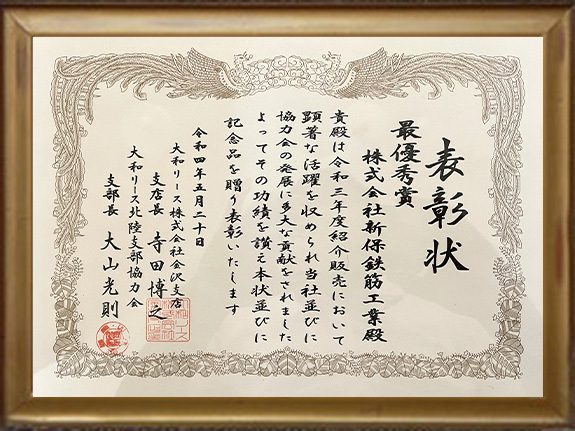 表彰状
最優秀賞
株式会社新保鉄筋工業殿
貴殿は令和三年度紹介販売において
顕著な活躍を収められ当社並びに
協力会の発展に多大な貢献をされました
よってその功績を讃え本状並びに
記念品を贈り表彰いたします
令和四年五月二十日
大和リース株式会社金沢支店
支店長 寺田博之
大和リース北陸支部協力会
支部長 大山光則